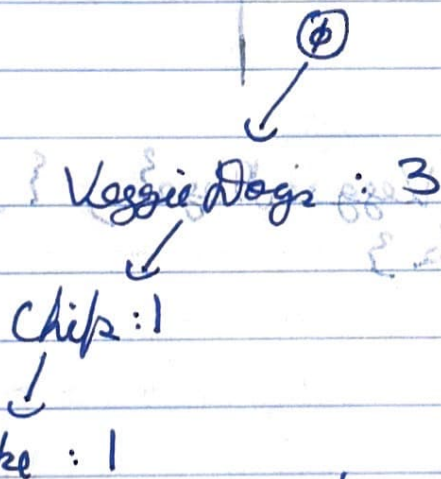 φ
Veggie Dogs : 3
Chips : 1
ke : 1